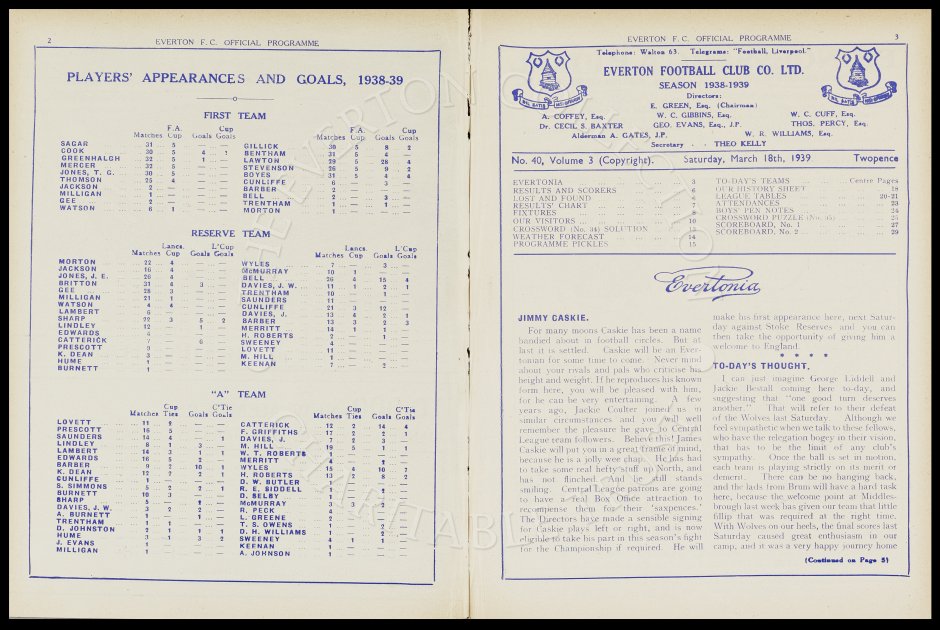 2
EVERTON F.C. OFFICIAL PROGRAMME
PLAYERS' APPEARANCES AND GOALS, 1938-39
FIRST TEAM
F.A. Cup
Matches Cup Goals Goals
SAGAR 31 5 — —
COOK 30 5 4
GREENHALGH 32 5 1 —
MERCER 32 5 — —
JONES, T. G. 30 5 — —
THOMSON 25 4 — —
JACKSON 2 — — —
MILLIGAN 1 — — —
GEE 2 — — —
WATSON 6 1 — —
F.A. Cup
Matches Cup Goals Goals
GILLICK 30 5 8 2
BENTHAM 31 5 4 —
LAWTON 29 5 28 4
STEVENSON 26 5 9 2
BOYES 31 5 4 4
CUNLIFFE 6 — 3 —
BARBER 2 — — —
BELL 2 — 3 —
TRENTHAM 1 — 1 —
MORTON 1 — — —
RESERVE TEAM
Lancs. L'Cup
Matches Cup Goals Goals
MORTON 22 4 — —
JACKSON 16 4 — —
JONES, J. E. 26 4 — —
BRITTON 31 4 3 —
GEE 28 3 — —
MILLIGAN 21 1 — —
WATSON 4 4 — —
LAMBERT 6 — — —
SHARP 22 3 5 2
LINDLEY 12 — 1 —
EDWARDS 6 — — —
CATTERICK 7 — 6 —
PRESCOTT 9 — — —
K. DEAN 3 — — —
HUME 1 — — —
BURNETT 1 — — —
Lancs. L'Cup
Matches Cup Goals Goals
WYLES 7 — 3 —
McMURRAY 10 1 — —
BELL 26 4 15 4
DAVIES, J. W. 11 1 2 1
TRENTHAM 10 — 1
SAUNDERS 11 — — —
CUNLIFFE 21 3 12 —
DAVIES, J. 13 4 2 1
BARBER 13 3 2 3
MERRITT 14 1 1 —
H. ROBERTS 2 — 1 —
SWEENEY 4 — — —
LOVETT 11 — — —
M. HILL 1 — — —
KEENAN 7 — 2 —
"A" TEAM
Cup C'Tie
Matches Ties Goals Goals
LOVETT 11 2 — —
PRESCOTT 16 5 — —
SAUNDERS 14 4 — 1
LINDLEY 8 1 3 —
LAMBERT 14 3 1 1
EDWARDS 16 5 2 —
BARBER 9 2 10 1
K. DEAN 12 2 2 1
CUNLIFFE 1 — — —
S. SIMMONS 5 2 2 1
BURNETT 10 3 — —
SHARP 5
DAVIES, J. W. 3 2 2 —
A. BURNETT 1 — 1 —
TRENTHAM 1 1 1 —
D. JOHNSTON 2 1 1 1
HUME 3 1 3 2
J. EVANS 1 — — —
MILLIGAN 1 — — —
Cup C'Tie
Matches Ties Goals Goals
CATTERICK 12 2 14 4
F. GRIFFITHS 17 2 2 1
DAVIES, J. 7 2 3 —
M. HILL 19 5 1 1
W. T. ROBERTS 1
MERRITT 4
WYLES 15 4 10 7
H. ROBERTS 13 2 8 2
D. W. BUTLER 1
R. E. SIDDELL 2
D. SELBY 1
McMURRAY 3 3 2
R. PECK 4
L. GREENE 2
T. S. OWENS 1
D. H. WILLIAMS 1
SWEENEY 4 1 1
KEENAN 1
A. JOHNSON 1
EVERTON F.C. OFFICIAL PROGRAMME
3
Telephone: Walton 63. Telegrams: "Football, Liverpool."
EVERTON FOOTBALL CLUB CO. LTD.
SEASON 1938-1939
Directors:
E. GREEN, Esq. (Chairman)
A. COFFEY, Esq. W. C. GIBBINS, Esq. W. C. CUFF, Esq.
Dr. CECIL S. BAXTER GEO. EVANS, Esq., J.P. THOS. PERCY, Esq.
Alderman A. GATES, J.P. W. R. WILLIAMS, Esq.
Secretary THEO KELLY
No. 40, Volume 3 (Copyright). Saturday, March 18th, 1939 Twopence
EVERTONIA 3
RESULTS AND SCORERS 6
LOST AND FOUND 6
RESULTS' CHART 7
FIXTURES 8
OUR VISITORS 10
CROSSWORD (No. 34) SOLUTION 13
WEATHER FORECAST 14
PROGRAMME PICKLES 15
TO-DAY'S TEAMS Centre Pages
OUR HISTORY SHEET 18
LEAGUE TABLES 20-21
ATTENDANCES 23
BOYS' PEN NOTES 24
CROSSWORD PUZZLE (No. 35) 25
SCOREBOARD, No. 1 27
SCOREBOARD, No. 2 29
Evertonia
JIMMY CASKIE.
For many moons Caskie has been a name
bandied about in football circles. But at
last it is settled. Caskie will be an Ever-
tonian for some time to come. Never mind
about your rivals and pals who criticise his
height and weight. If he reproduces his known
form here, you will be pleased with him,
for he can be very entertaining. A few
years ago, Jackie Coulter joined us in
similar circumstances and you will well
remember the pleasure he gave to Central
League team followers. Believe this! James
Caskie will put you in a great frame of mind,
because he is a jolly wee chap. He has had
to take some real hefty stuff up North, and
has not flinched. And he still stands
smiling. Central League patrons are going
to have a real Box Office attraction to
recompense them for their 'saxpences.
The Directors have made a sensible signing
for Caskie plays left or right, and is now
eligible to take his part in this season's fight
for the Championship if required. He will
make his first appearance here, next Satur-
day against Stoke Reserves and you can
then take the opportunity of giving him a
welcome to England.
* * * *
TO-DAY'S THOUGHT.
I can just imagine George Liddell and
Jackie Bestall coming here to-day, and
suggesting that "one good turn deserves
another." That will refer to their defeat
of the Wolves last Saturday. Although we
feel sympathetic when we talk to these fellows,
who have the relegation bogey in their vision,
that has to be the limit of any club's
sympathy. Once the ball is set in motion,
each team is playing strictly on its merit or
demerit. There can be no hanging back,
and the lads from Brum will have a hard task
here, because the welcome point at Middles-
brough last week has given our team that little
fillip that was required at the right time.
With Wolves on our heels, the final scores last
Saturday caused great enthusiasm in our
camp, and it was a very happy journey home
(Continued on Page 5)